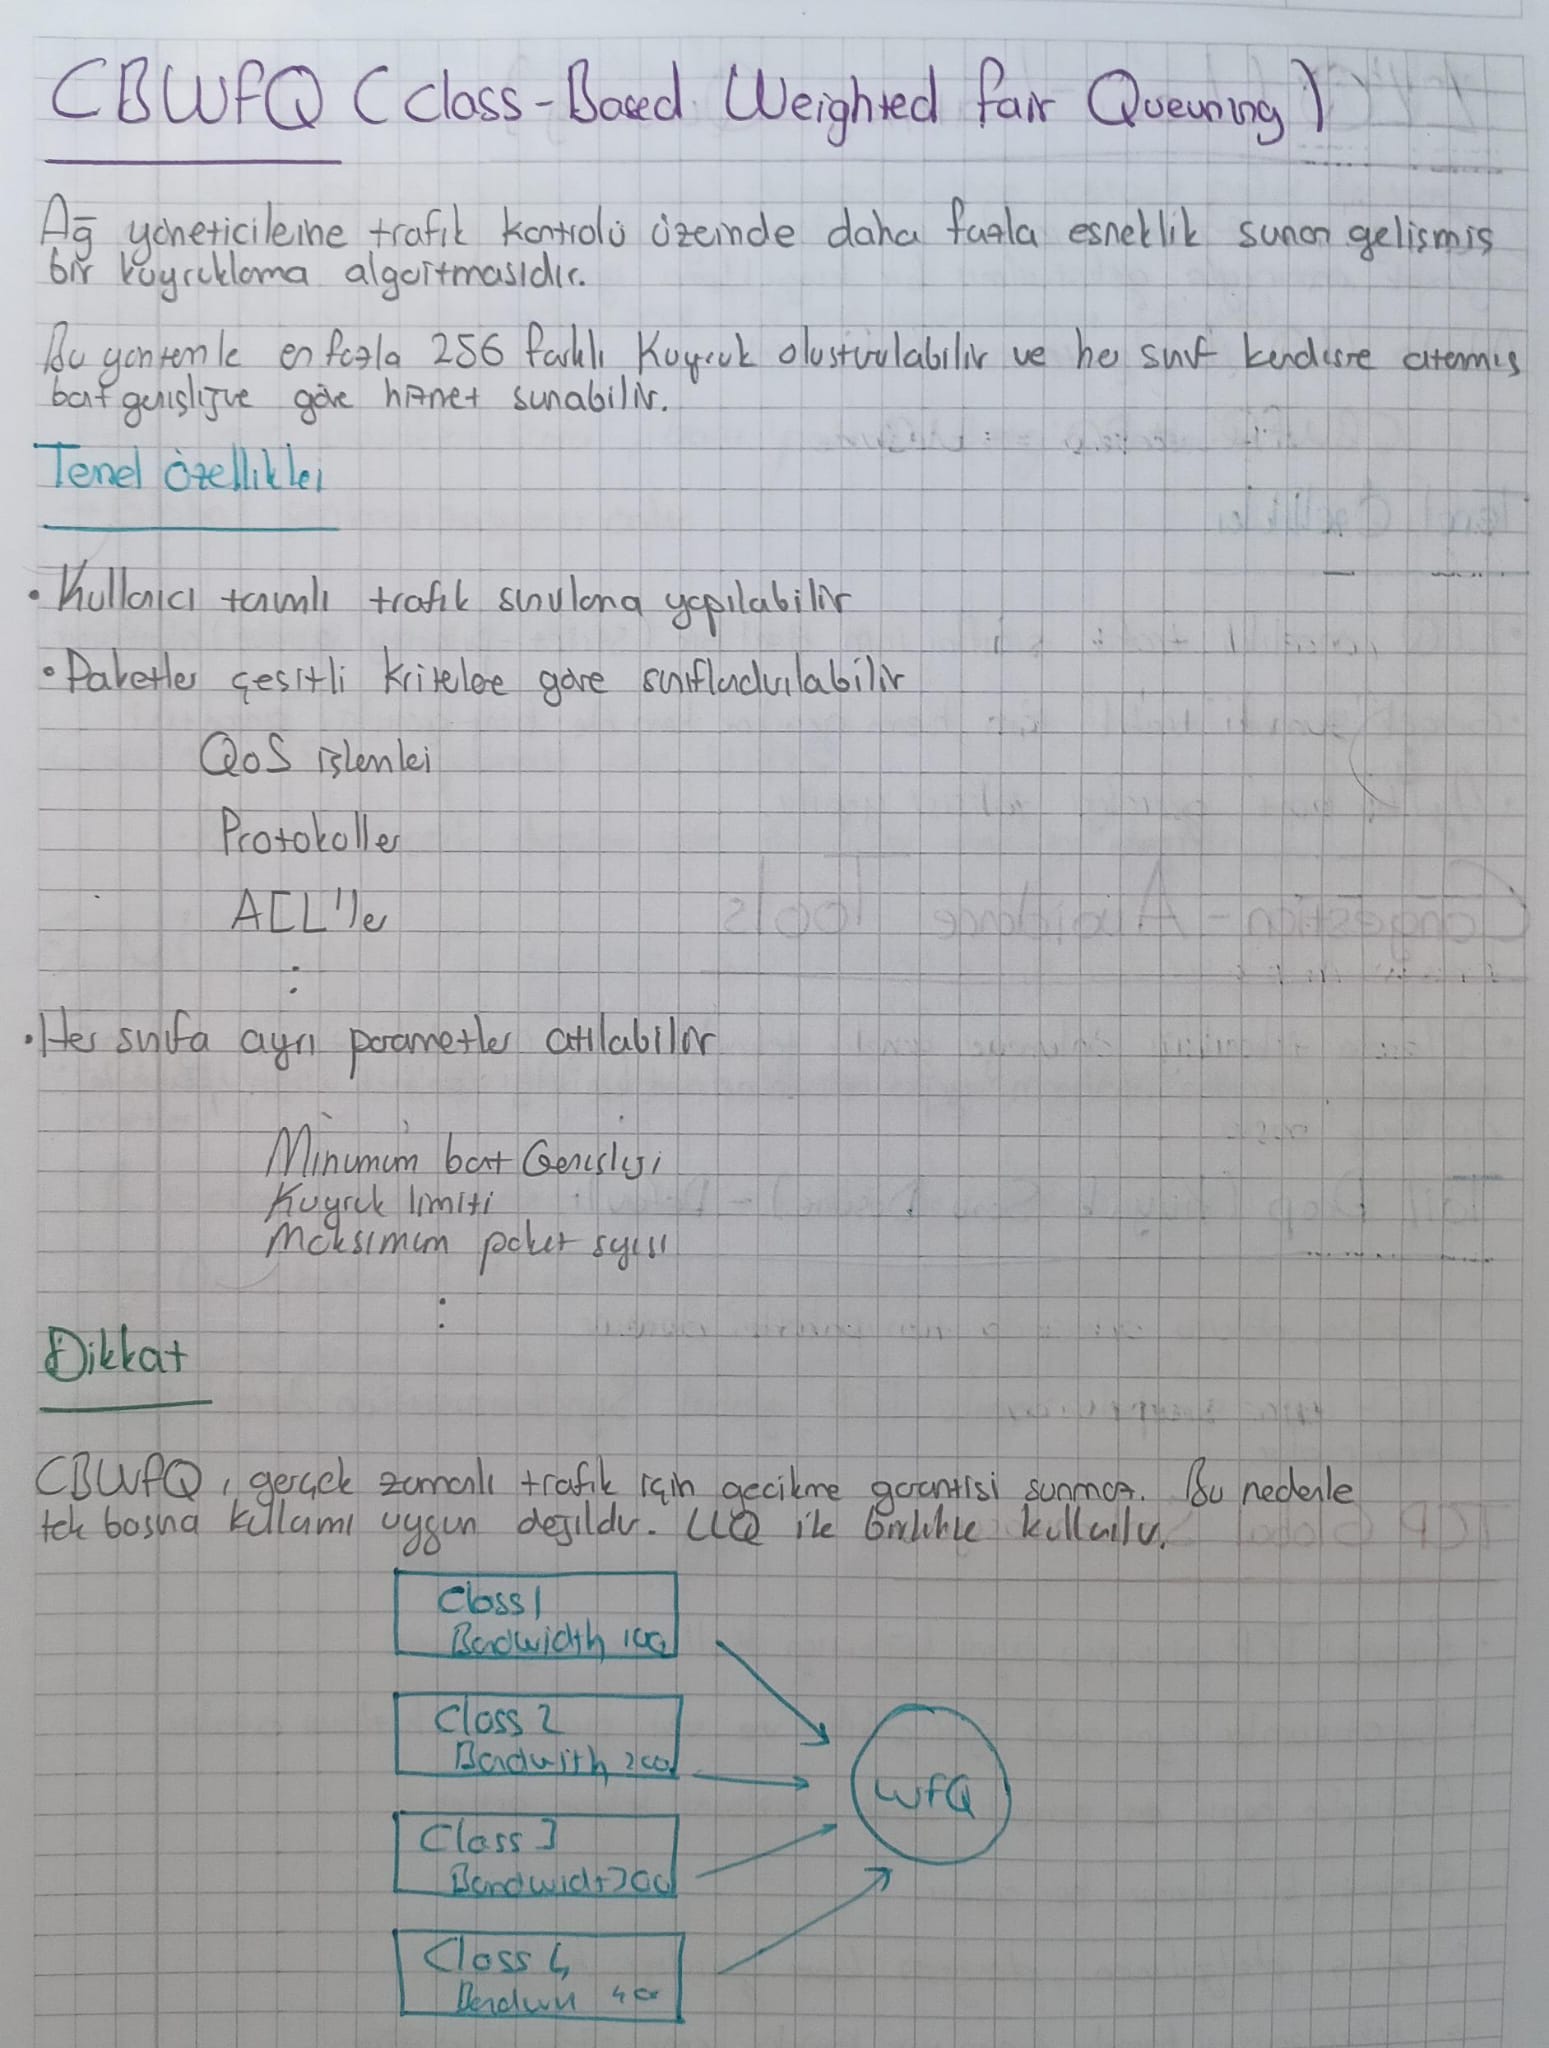 CBWFQ (Class-Based Weighted Fair Queuning)
Ağ yöneticilerine trafik kontrolü üzerinde daha fazla esneklik sunan gelişmiş
bir kuyruklama algoritmasıdır.
Bu yöntemle en fazla 256 farklı kuyruk oluşturulabilir ve her sınıf kendisine atanmış
bant genişliğine göre hizmet sunabilir.
Temel özellikler
• Kullanıcı tanımlı trafik sınıflama yapılabilir
• Paketler çeşitli kriterlere göre sınıflandırılabilir
QoS işlemleri
Protokoller
ACL'ler
:
• Her sınıfa ayrı parametreler atılabilir
Minumum bant Genişliği
Kuyruk limiti
Maksimum paket sayısı
:
Dikkat
CBWFQ, gerçek zamanlı trafik için gecikme garantisi sunmaz. Bu nedenle
tek başına kullanımı uygun değildir. LLQ ile birlikte kullanılır.
Class 1
Bandwidth 100
Class 2
Bandwith 200
WFQ
Class 3
Bandwidt 300
Class 4
400